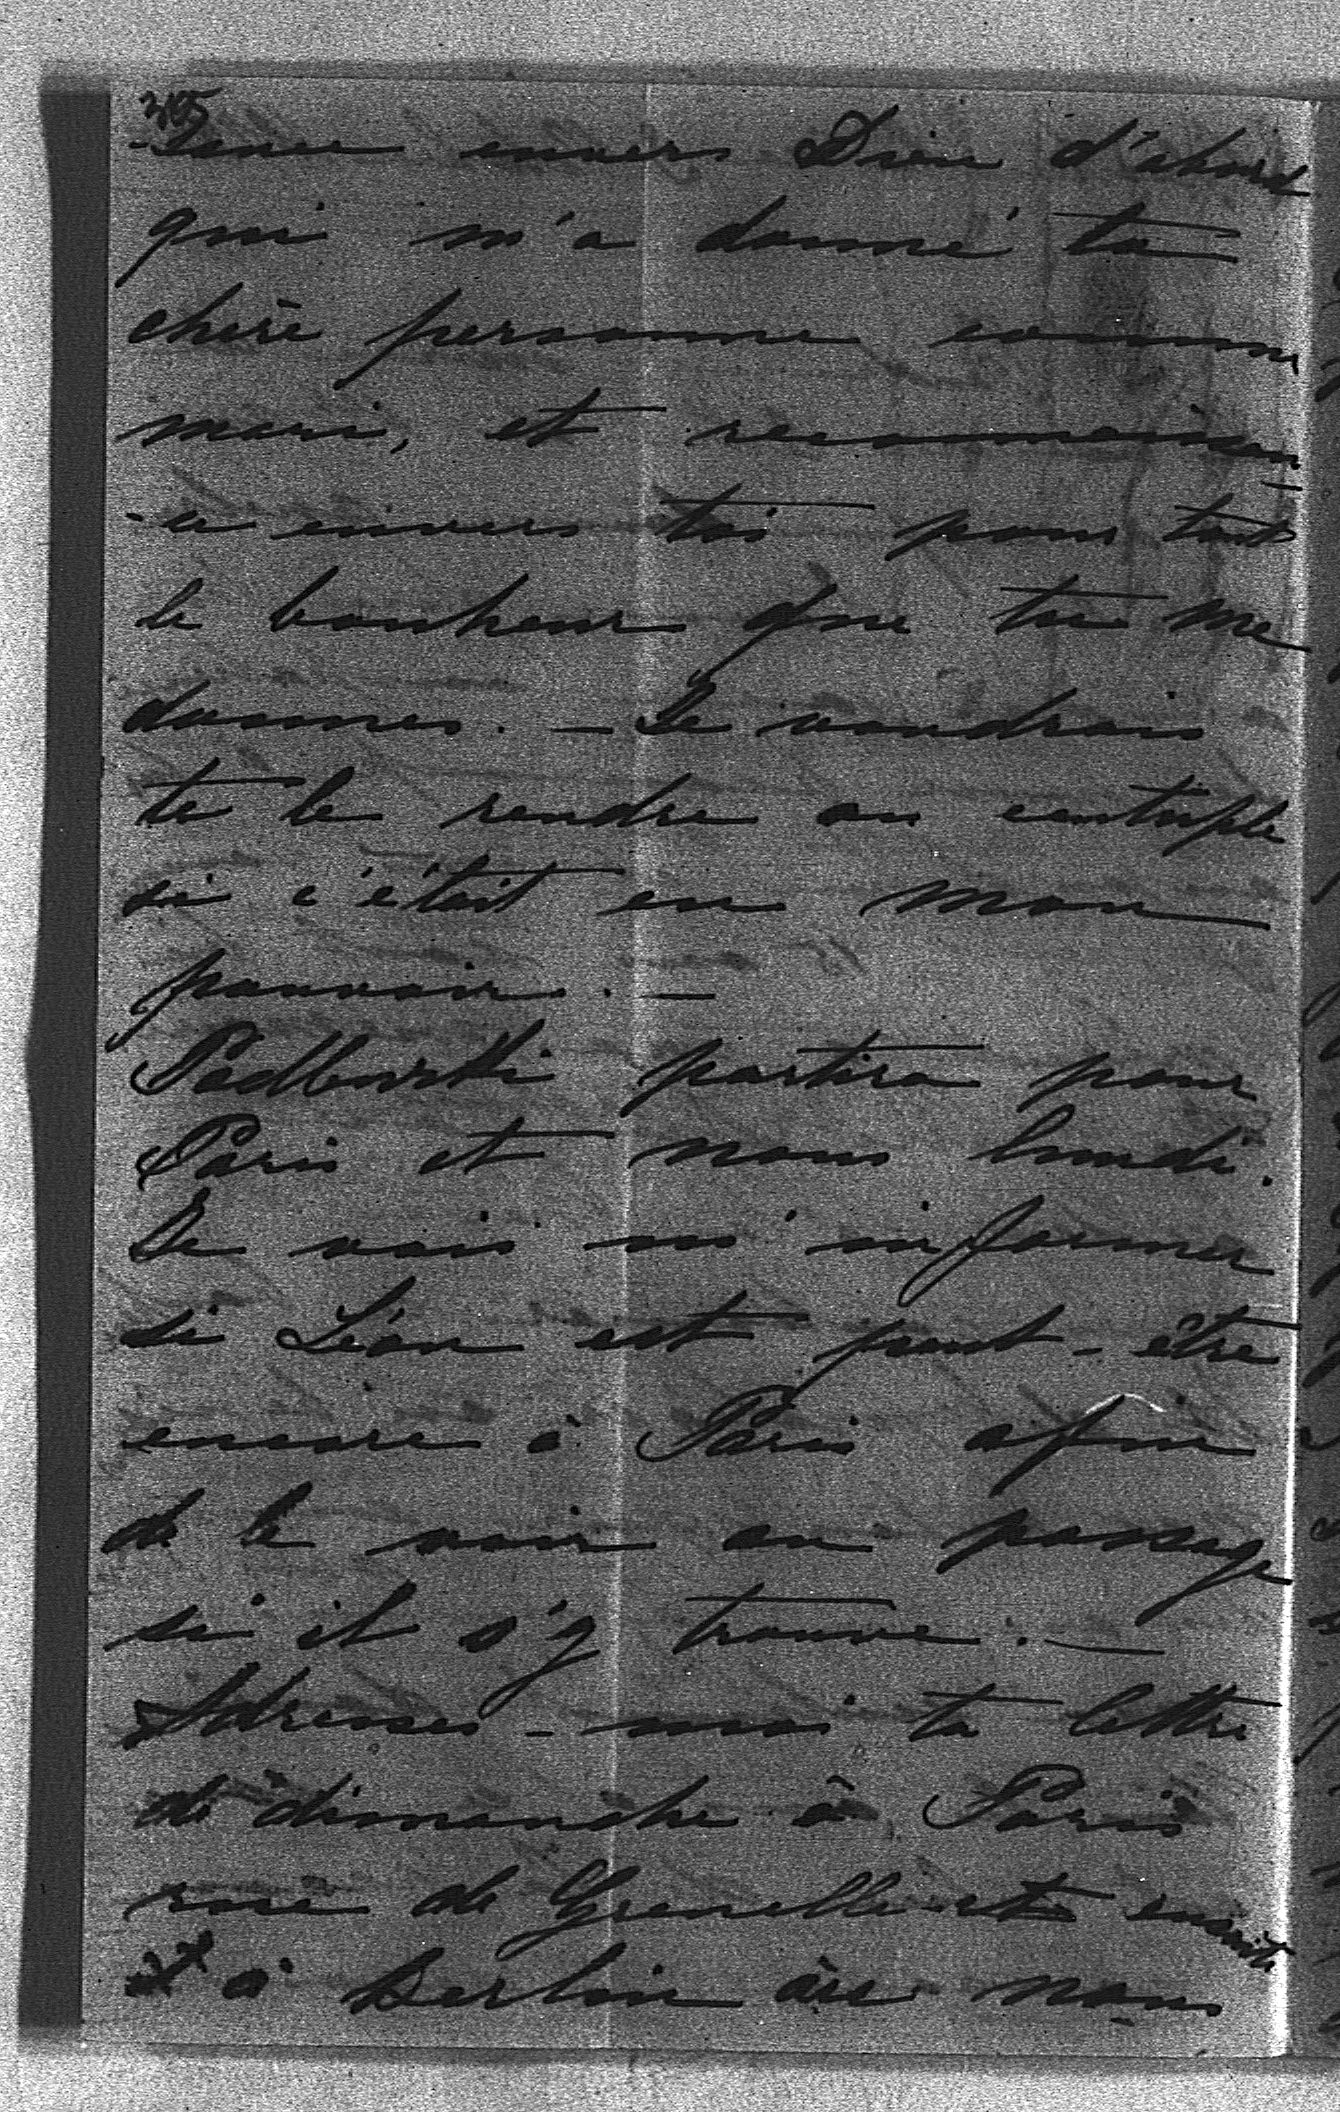 -sance envers Dieu d'abord
qui m'a donné ta
chère personne comme
mari, et reconnaissan
-ce envers toi pour tout
le bonheur que tu me
donnes. — Je voudrais
te le rendre au centuple
si c'était en mon
pouvoir. —
partira pour
Paris et nous lundi.
Je vais m'informer
si Léon est peut-être
encore à Paris afin
de le voir au passage
si il s'y trouve. —
Adresses-moi ta lettre
de dimanche à Paris
rue de Grenelle et ensuite
à Berlin où nous